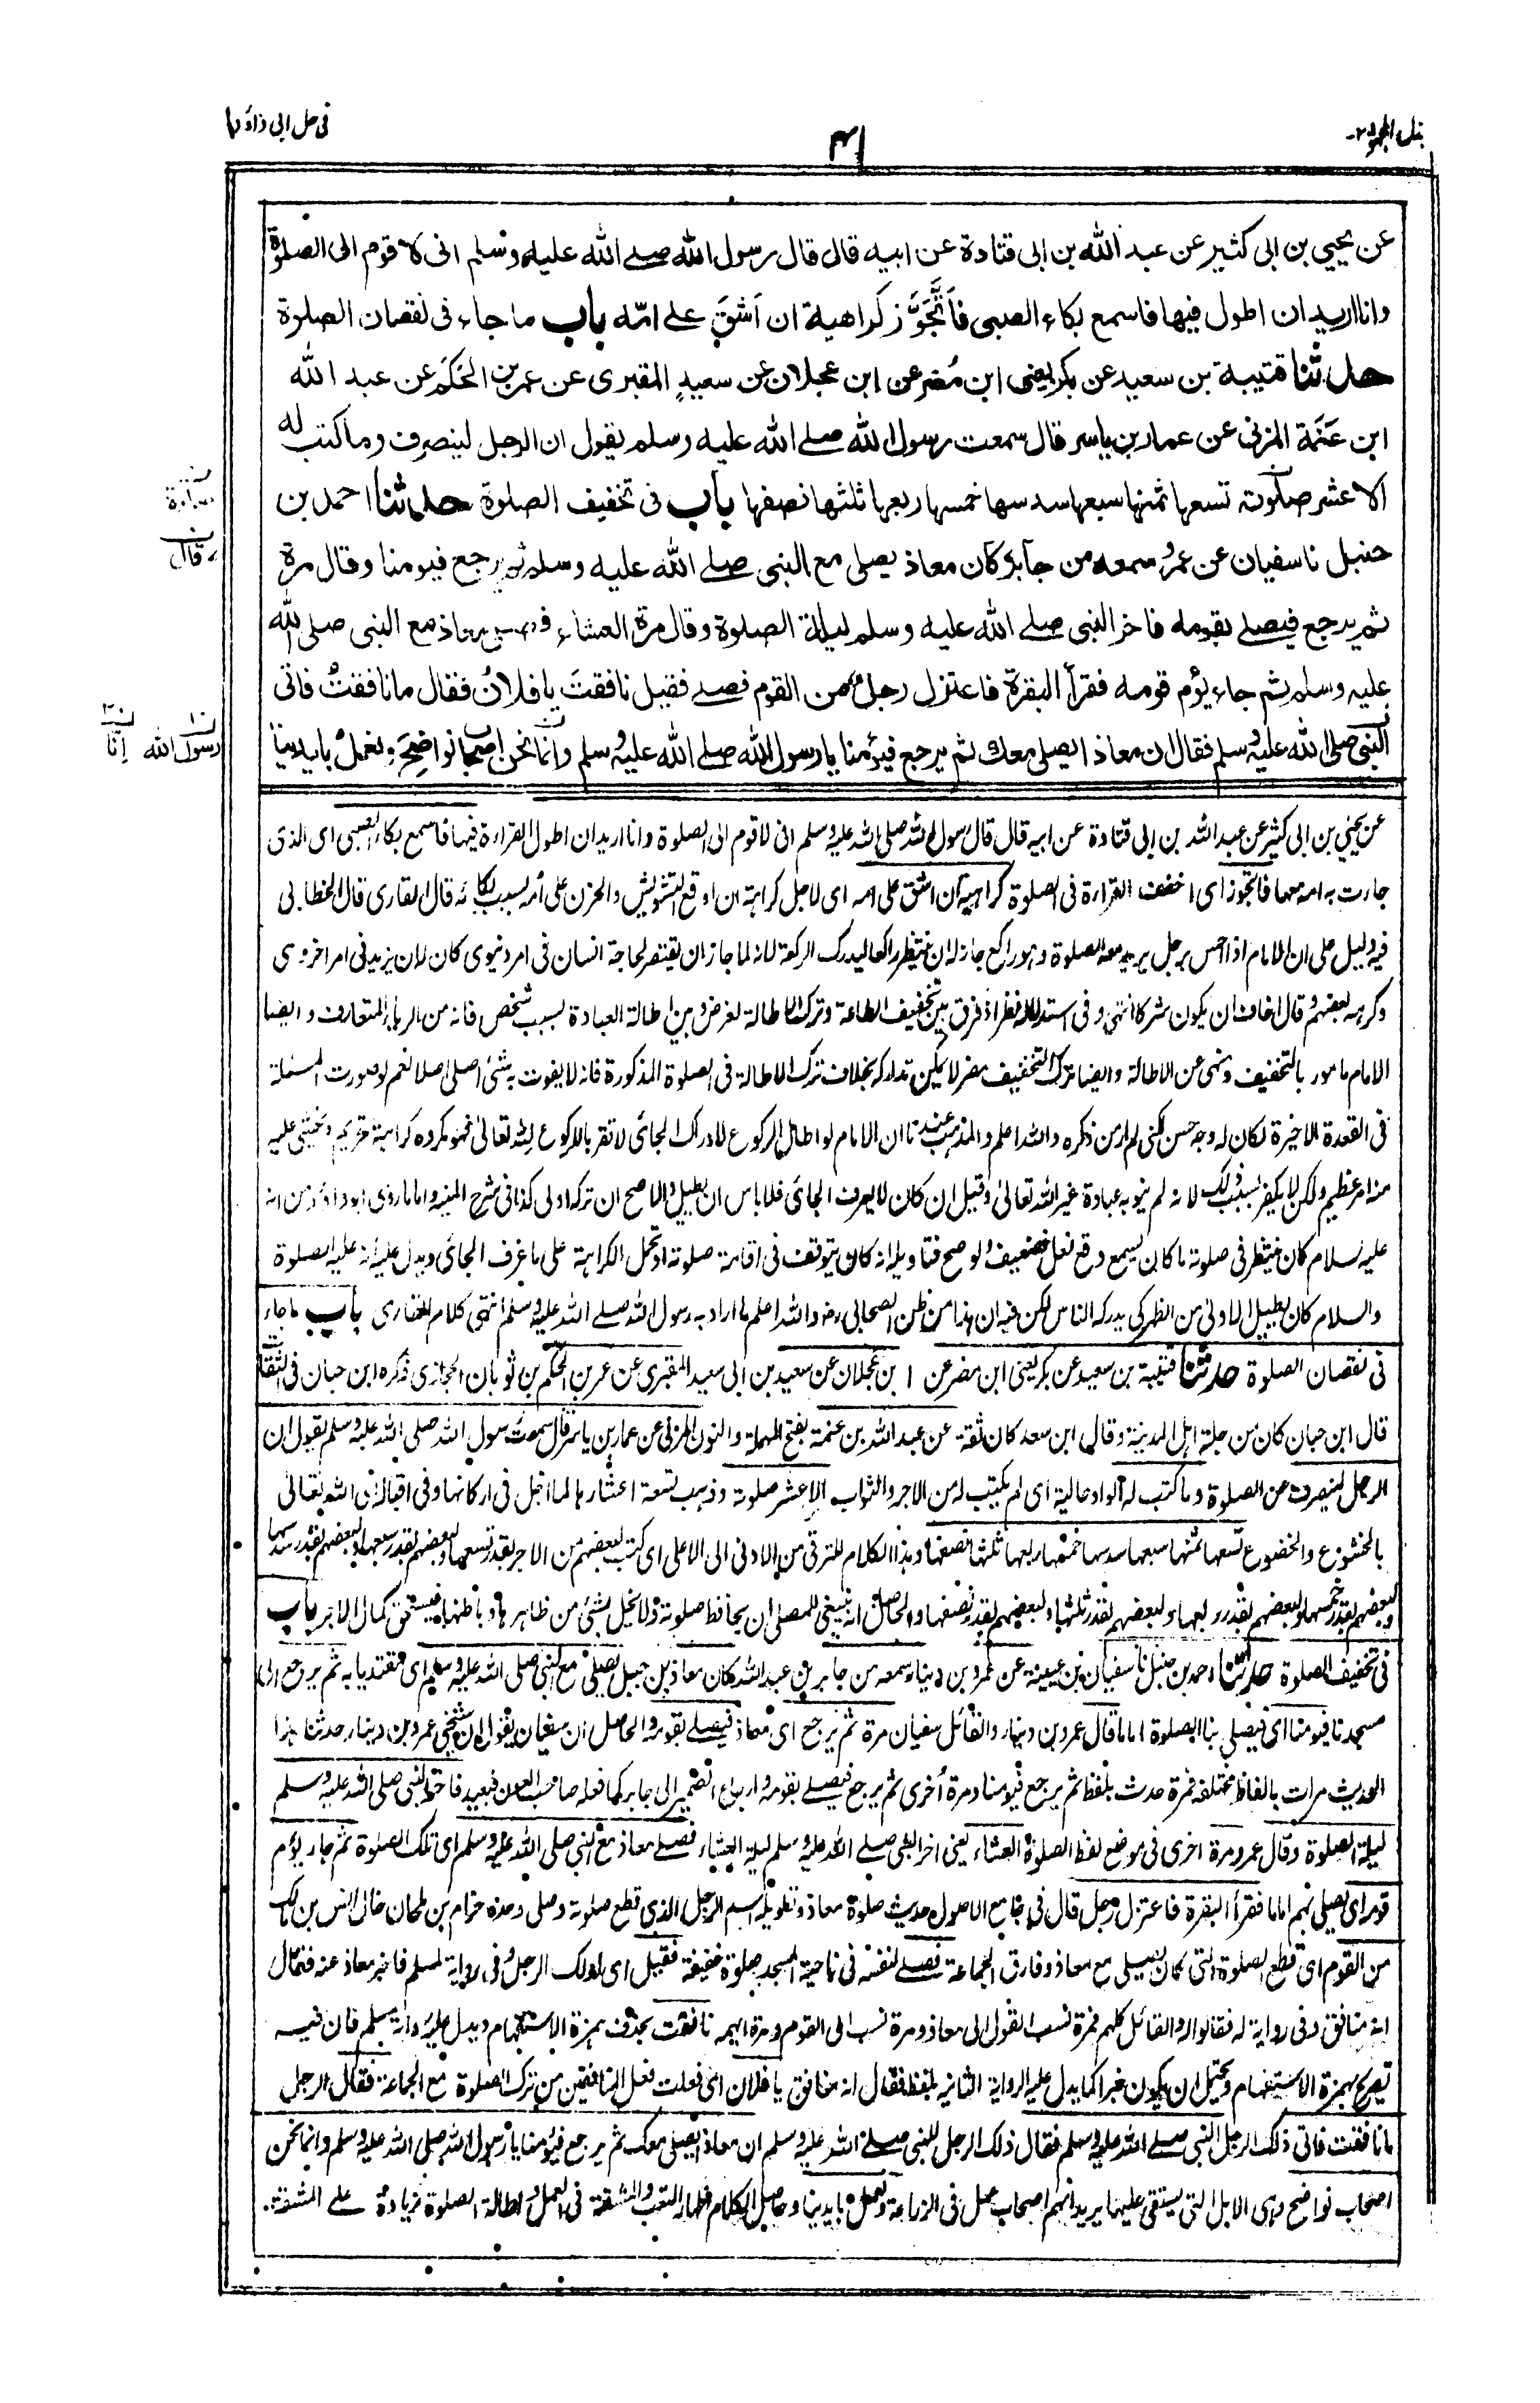 بذل المجهود ٢-
٤١
فى حل ابى داؤد
عن يحيى بن ابى كثير عن عبد الله بن ابى قتادة عن ابيه قال قال رسول الله صلے الله عليه وسلم انى لاقوم الى الصلوة
وانا اريد ان اطول فيها فاسمع بكاء الصبى فاَتَجَوَّز كراهية ان اَشقَّ علے امّه باب ما جاء فى نقصان الصلوة
حدثنا قتيبة بن سعيد عن بكر يعنى ابن مُضر عن ابن عجلان عن سعيدٍ المقبرى عن عمر بن الحَكَم عن عبد الله
ابن عَنَمَة المزنى عن عمار بن ياسر قال سمعت رسول الله صلے الله عليه وسلم يقول ان الرجل لينصرف وما كتب له
الا عشر صلوته تسعها ثمنها سبعها سدسها خمسها ربعها ثلثها نصفها باب فى تخفيف الصلوة حدثنا احمد بن
حنبل نا سفيان عن عمرو سمعه من جابر كان معاذ يصلى مع النبى صلے الله عليه وسلم ثم يرجع فيومنا وقال مرة
ثم يرجع فيصلے بقومه فاخر النبى صلے الله عليه وسلم ليلة الصلوة وقال مرة العشاء فصلى معاذ مع النبى صلى الله
عليه وسلم ثم جاء يؤم قومه فقرأ البقرة فاعتزل رجل من القوم فصلے فقيل نافقتَ يا فلانُ فقال ما نافقتُ فاتى
النبى صلى الله عليه وسلم فقال ان معاذا يصلى معك ثم يرجع فيؤمنا يا رسول الله صلے الله عليه وسلم وانما نحن اصحاب نواضِحَ ونعملُ بايدينا
ن
قال
رسول الله
اِنّا
عن يحيى بن ابى كثير عن عبد الله بن ابى قتادة عن ابيه قال قال رسول الله صلى الله عليه وسلم انى لاقوم الى الصلوة وانا اريد ان اطول القراءة فيها فاسمع بكاء الصبى اى الذى
جاءت به امه معها فاتجوز اى اخفف القراءة فى الصلوة كراهية ان اشق على امه اى لاجل كراهة ان اوقع التشويش والحزن على امه بسبب بكائه قال القارى قال الخطابى
فيه دليل على ان الامام اذا احس برجل يريد معه الصلوة وهو راكع جاز له ان ينتظر راكعا ليدرك الركعة لانه لما جاز ان يقتصر لحاجة انسان فى امر دنيوى كان له ان يزيد فى امر اخروى
وكرهه بعضهم وقال اخاف ان يكون شركا انتهى وفى استدلاله نظر اذ فرق بين تخفيف الطاعة وترك الاطالة لغرض وبين اطالة العبادة بسبب شخص فانه من الرياء المتعارف وايضا
الامام مامور بالتخفيف ونهى عن الاطالة وايضا ترك التخفيف مضر لا يمكن تداركه بخلاف ترك الاطالة فى الصلوة المذكورة فانه لا يفوت به شئ اصلى اصلا نعم لو صورت المسئلة
فى القعدة الاخيرة لكان له وجه حسن لكنى لم ار من ذكره والله اعلم والمذهب عندنا ان الامام لو اطال الركوع لادراك الجائى لا تقربا بالركوع لله تعالى فهو مكروه كراهة تحريم ويخشى عليه
منه امر عظيم ولكن لا يكفر بسبب ذلك لانه لم ينو به عبادة غير الله تعالى وقيل ان كان لا يعرف الجائى فلا باس ان يطيل والاصح ان تركه اولى كذا فى شرح المنية واما ما روى ابو داؤد من انه
عليه السلام كان ينتظر فى صلوته ما كان يسمع وقع نعل فضعيف ولو صح فتاويله انه كان يتوقف فى اقامة صلوته او تحمل الكراهة على ما عرف الجائى ويدل عليه انه عليه الصلوة
والسلام كان يطيل الاولى من الظهر كى يدركه الناس لكن فيه ان هذا من ظن الصحابى رض والله اعلم ما اراد به رسول الله صلے الله عليه وسلم انتهى كلام للقارى باب ما جاء
فى نقصان الصلوة حدثنا قتيبة بن سعيد عن بكر يعنى ابن مضر عن ابن عجلان عن سعيد بن ابى سعيد المقبرى عن عمر بن الحكم بن ثوبان الحجازى ذكره ابن حبان فى الثقات
قال ابن حبان كان من جلة اهل المدينة وقال ابن سعد كان ثقة عن عبد الله بن عنمة بفتح المهملة والنون المزنى عن عمار بن ياسر قال سمعت رسول الله صلى الله عليه وسلم يقول ان
الرجل لينصرف من الصلوة وما كتب له الواو حالية اى لم يكتب له من الاجر والثواب الا عشر صلوته وذهب تسعة اعشارها لما اخل فى اركانها وفى اقباله الى الله تعالى
بالخشوع والخضوع تسعها ثمنها سبعها سدسها خمسها ربعها ثلثها نصفها وهذا الكلام للترقى من الادنى الى الاعلى اى كتب لبعضهم من الاجر بقدر تسعها ولبعضهم بقدر سبعها ولبعضهم بقدر سدسها
ولبعضهم بقدر خمسها ولبعضهم بقدر ربعها ولبعضهم بقدر ثلثها ولبعضهم بقدر نصفها والحاصل انه ينبغى للمصلى ان يحافظ صلوته ولا يخل بشئ من ظاهرها وباطنها فيستحق كمال الاجر باب
فى تخفيف الصلوة حدثنا احمد بن حنبل نا سفيان بن عيينة عن عمرو بن دينار سمعه من جابر بن عبد الله كان معاذ بن جبل يصلى مع النبى صلى الله عليه وسلم اى مقتديا به ثم يرجع الى
مسجدنا فيومنا اى فيصلى بنا الصلوة اماما قال عمرو بن دينار والقائل سفيان مرة ثم يرجع اى معاذ فيصلے بقومه والحاصل ان سفيان يقول ان شيخى عمرو بن دينار حدثنا هذا
الحديث مرات بالفاظ مختلفة فمرة حدث بلفظ ثم يرجع فيؤمنا ومرة اُخرى ثم يرجع فيصلے بقومه وارجاع الضمير الى جابر كما فعله صاحب العون فبعيد فاخر النبى صلى الله عليه وسلم
ليلة الصلوة وقال عمرو مرة اخرى فى موضع لفظ الصلوة العشاء يعنى اخر النبى صلے الله عليه وسلم ليلة العشاء فصلے معاذ مع النبى صلى الله عليه وسلم اى تلك الصلوة ثم جاء يؤم
قومه اى يصلى بهم اماما فقرأ البقرة فاعتزل رجل قال فى جامع الاصول حديث صلوة معاذ وتطويله اسم الرجل الذى قطع صلوته وصلى وحده حزام بن لمحان خال انس بن مالك
من القوم اى قطع الصلوة التى كان يصلى مع معاذ وفارق الجماعة فصلے لنفسه فى ناحية المسجد صلوة خفيفة فقيل اى لذلك الرجل وفى رواية لمسلم فاخبر معاذ عنه فقال
انه منافق وفى رواية له فقالوا له والقائل كلهم فمرة نسب القول الى معاذ ومرة نسب الى القوم ومرة ابهمه نافقت بحذف همزة الاستفهام ويدل عليه رواية مسلم فان فيه
تصريح بهمزة الاستفهام ويحتمل ان يكون خبرا كما يدل عليه الرواية الثانية بلفظ فقال انه منافق يا فلان اى فعلت فعل المنافقين من ترك الصلوة مع الجماعة فقال الرجل
ما نافقت فاتى ذلك الرجل النبى صلے الله عليه وسلم فقال ذلك الرجل للنبى صلے الله عليه وسلم ان معاذا يصلى معك ثم يرجع فيؤمنا يا رسول الله صلى الله عليه وسلم وانما نحن
اصحاب نواضح وهى الابل التى يستقى عليها يريد انهم اصحاب عمل فى الزراعة ونعمل بايدينا وحاصل الكلام اظهار التعب والمشقة فى العمل واطالة الصلوة زيادة على المشقة.